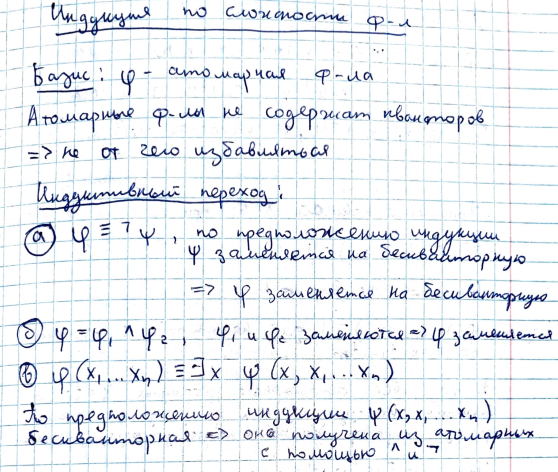 Индукция по сложности ф-л
Базис: φ - атомарная ф-ла
Атомарные ф-лы не содержат кванторов
=> не от чего избавляться
Индуктивный переход:
а) φ ≡ ¬ψ, по предположению индукции
ψ заменяется на бескванторную
=> φ заменяется на бескванторную
б) φ = φ₁ ∧ φ₂, φ₁ и φ₂ заменяются => φ заменяется
в) φ(x₁,...xₙ) ≡ ∃x ψ(x, x₁,...xₙ)
По предположению индукции ψ(x, x₁,...xₙ)
бескванторная => она получена из атомарных
с помощью ∧ и ¬